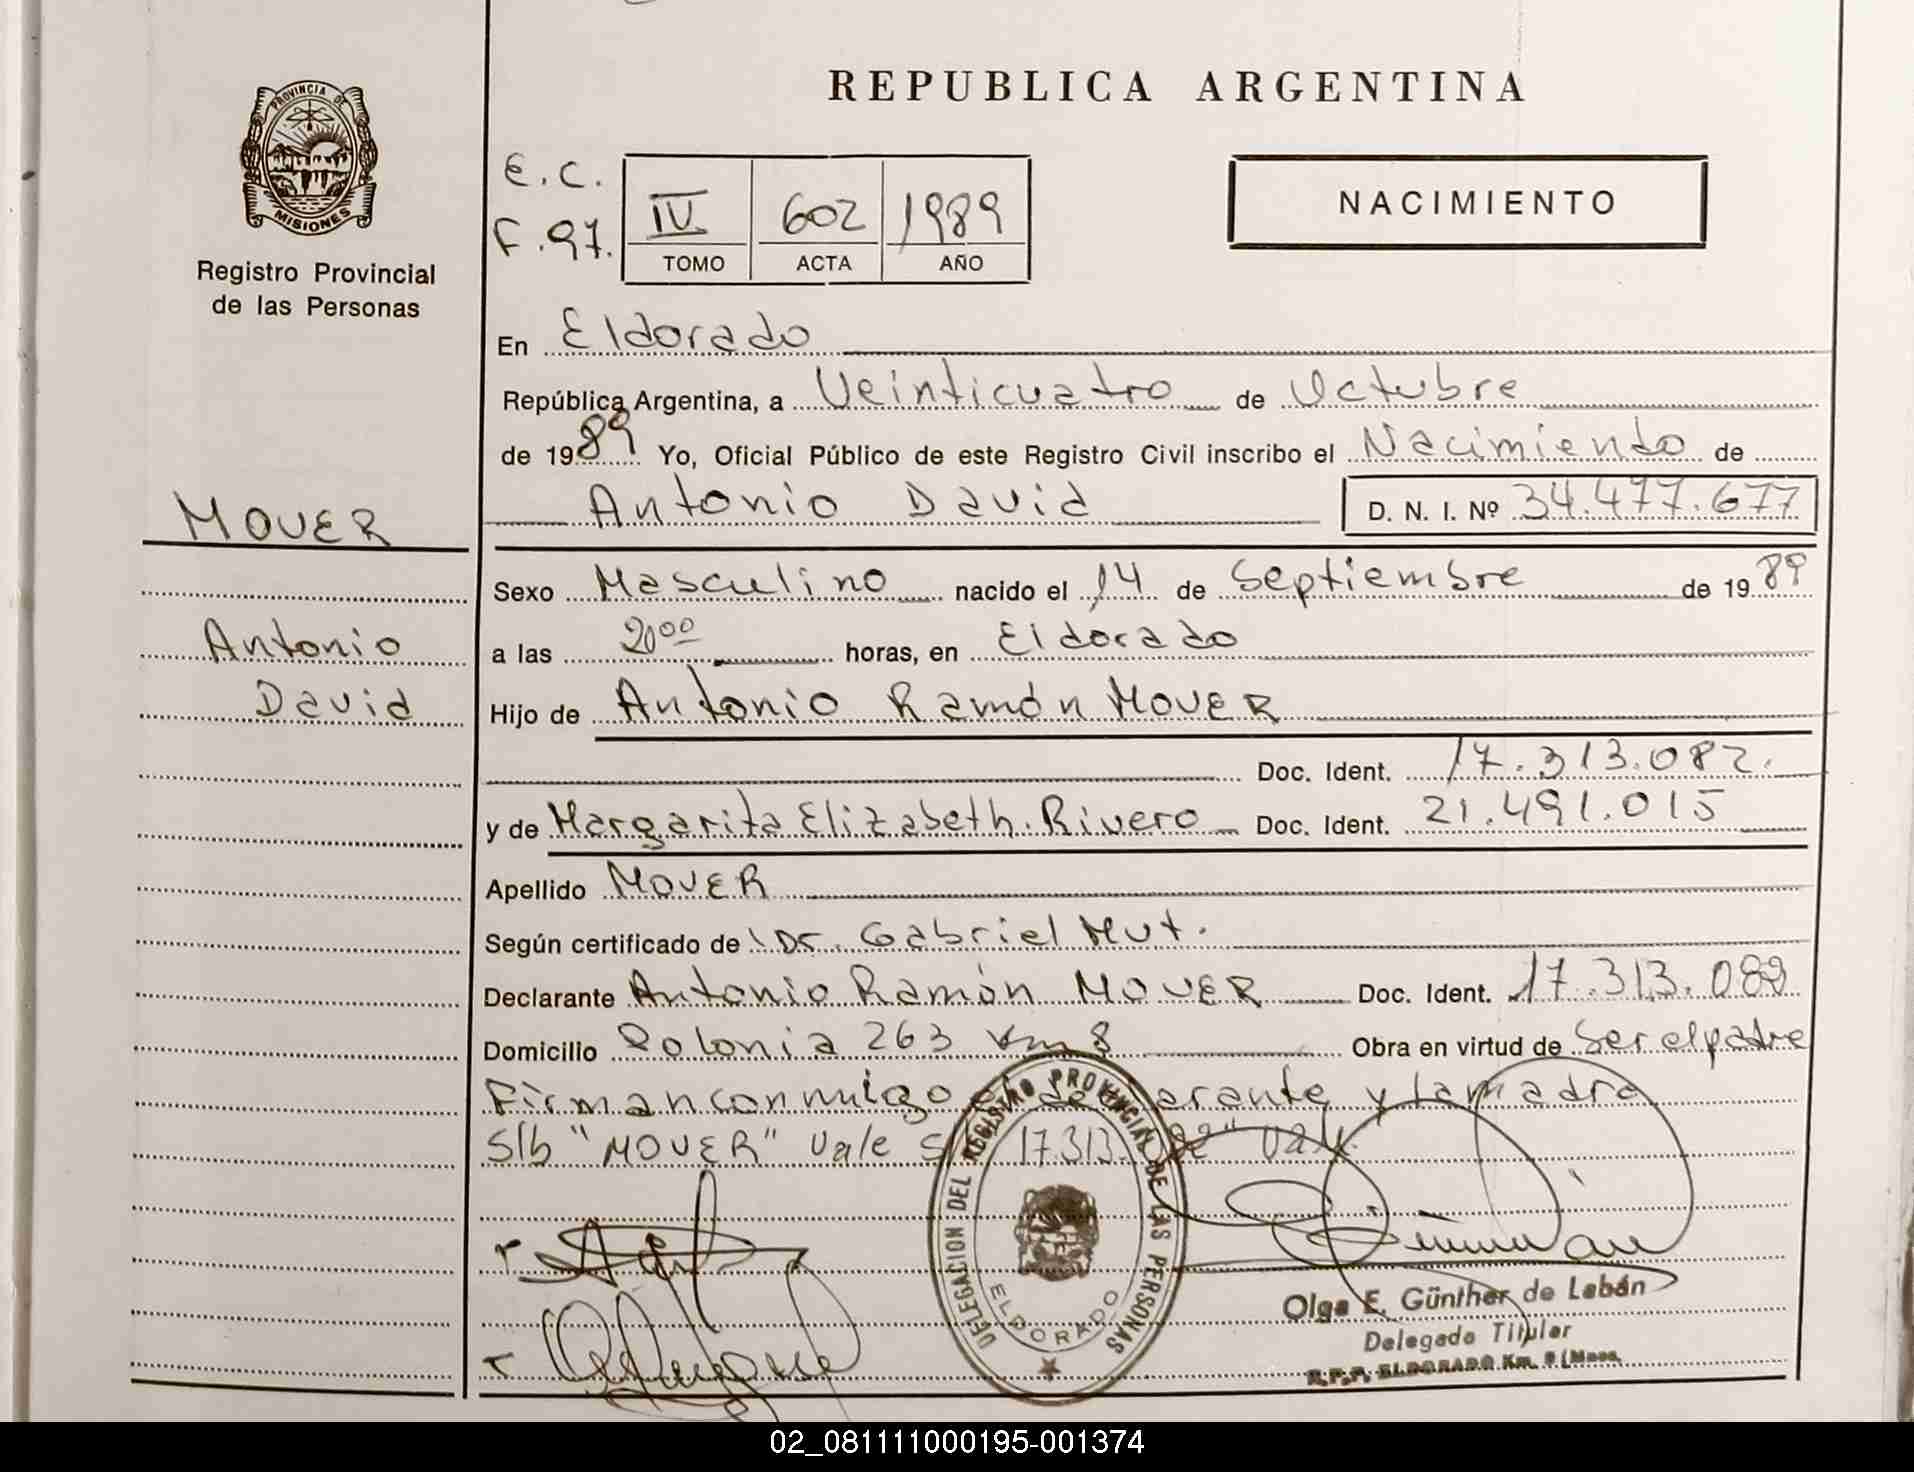 REPUBLICA ARGENTINA
PROVINCIA DE MISIONES
Registro Provincial
de las Personas
E.C.
F.97.
IV 602 1989
TOMO ACTA AÑO
NACIMIENTO
En Eldorado
República Argentina, a Veinticuatro de Octubre
de 1989 Yo, Oficial Público de este Registro Civil inscribo el Nacimiento de
Antonio David D. N. I. Nº 34.477.677
MOVER
Antonio
David
Sexo Masculino nacido el 14 de Septiembre de 1989
a las 20⁰⁰ horas, en Eldorado
Hijo de Antonio Ramón MOVER
Doc. Ident. 17.313.082.
y de Margarita Elizabeth Rivero Doc. Ident. 21.491.015
Apellido MOVER
Según certificado de Dr. Gabriel Mut.
Declarante Antonio Ramón MOVER Doc. Ident. 17.313.082
Domicilio Polonia 263 Km 8 Obra en virtud de Ser el padre
Firman conmigo el declarante y la madre
S/b "MOVER" Vale S/b "17.313.082" Vale.
DELEGACION DEL REGISTRO PROVINCIAL DE LAS PERSONAS
ELDORADO
Olga E. Günther de Labán
Delegada Titular
R.P.P. ELDORADO Km. 9 (Mnes.
02_081111000195-001374